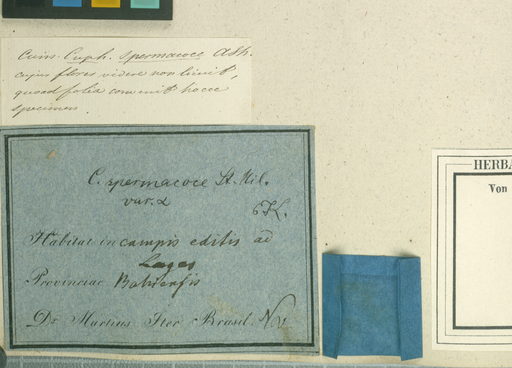 Cum Cuph. spermacoce ASH.
cujus flores videre non licuit,
quoad folia convenit hocce
specimen
C. spermacoce St. Hil.
var. α
Habitat in campis editis ad
Lages
Provinciae Bahiensis
Dr Martius Iter Brasil.
HERBA
Von